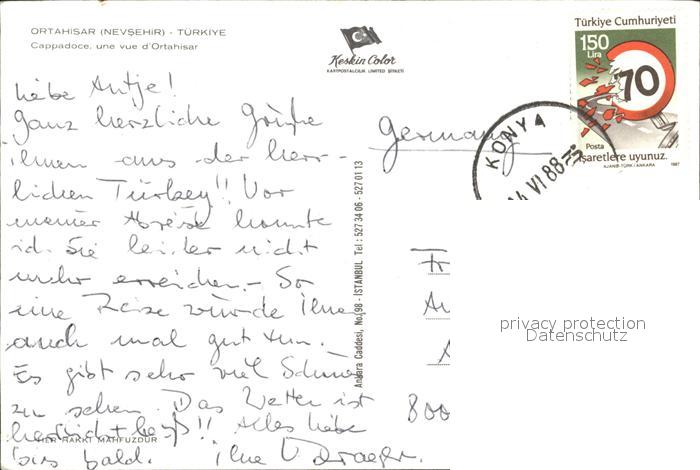 ORTAHİSAR (NEVŞEHİR) - TÜRKİYE
Cappadoce, une vue d'Ortahisar
Keskin Color
KARTPOSTALCILIK LIMITED ŞİRKETİ
Türkiye Cumhuriyeti
150
Lira
70
Posta
İşaretlere uyunuz.
AJANS-TÜRK/ANKARA 1987
KONYA
14 VI 88
liebe Antje!
Ganz herzliche Grüße
Ihnen aus der herr-
lichen Türkey!! Vor
meiner Abreise konnte
ich Sie leider nicht
mehr erreichen. - So
eine Reise würde Ihnen
auch mal gut tun.
Es gibt sehr viel Schönes
zu sehen. Das Wetter ist
herrlicht heiß!! Alles liebe
bis bald. Ihre V. Draeger.
HER HAKKI MAHFUZDUR
Ankara Caddesi, No. 98 - İSTANBUL Tel : 527 34 06 - 527 01 13
Germany
Fr
800
privacy protection
Datenschutz